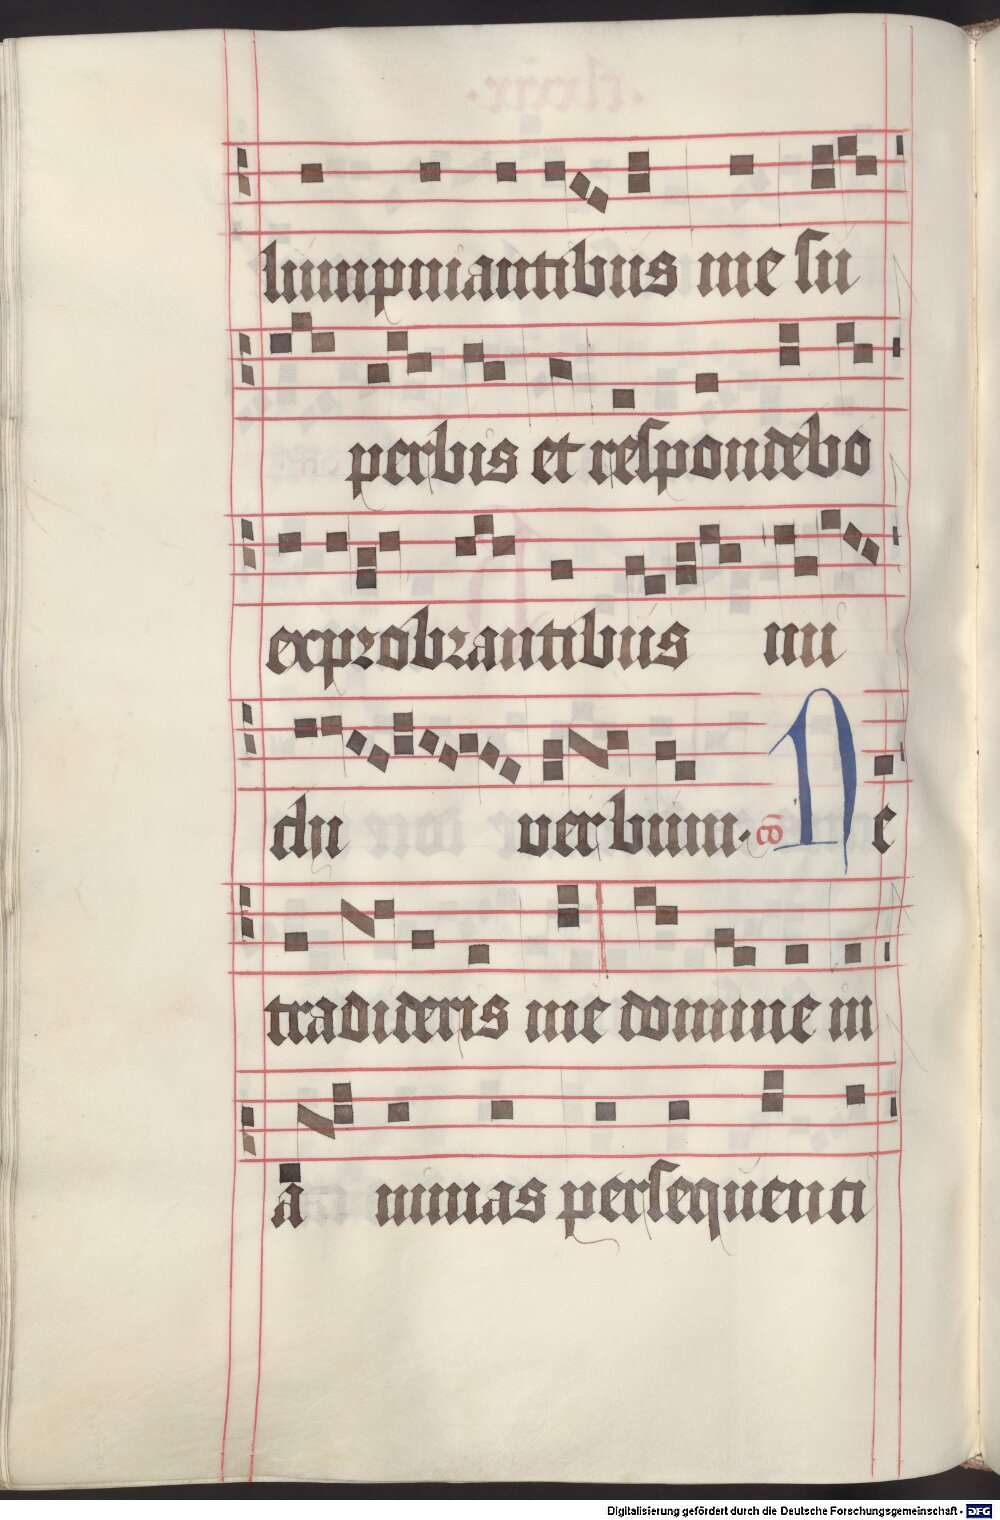 lumpniantibus me su
perbis et respondebo
exprobrantibus mi
chi verbum. cō Ne
tradideris me domine in
a nimas persequenti
Digitalisierung gefördert durch die Deutsche Forschungsgemeinschaft - DFG